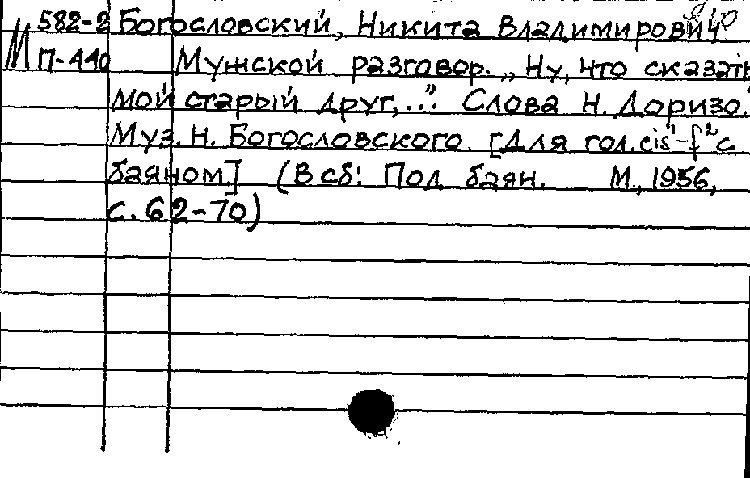 М 582-2 Богословский, Никита Владимирович
П-440 Мужской разговор. „Ну, что сказать
мой старый друг,..." Слова Н. Доризо.
Муз. Н. Богословского. [Для гол. cis¹-f² с
баяном] (В сб: Под баян. М., 1956,
с. 62-70)